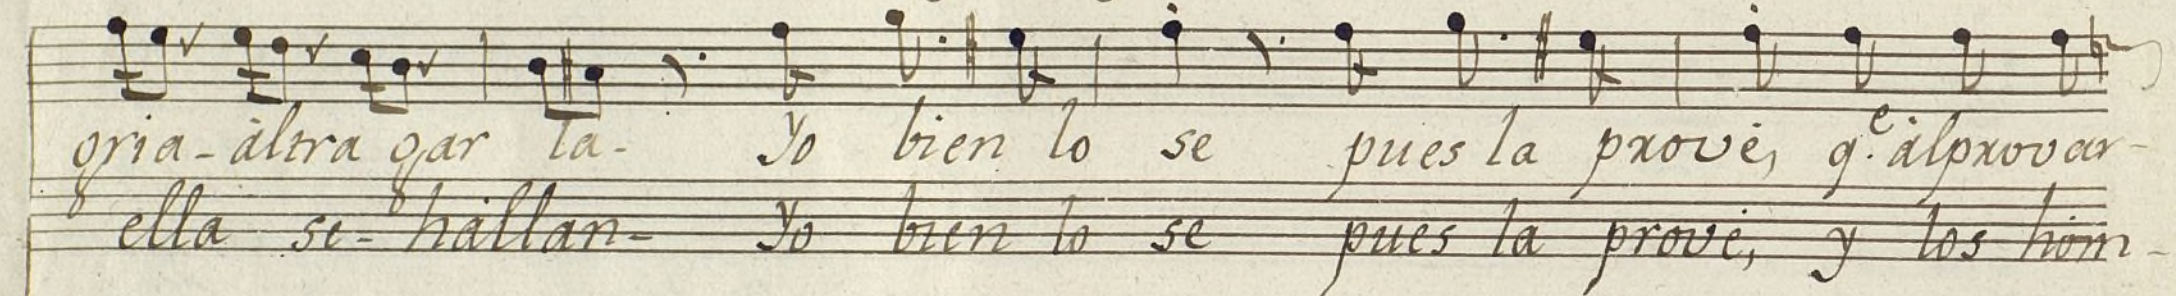 gria - àltra gar la - Yo bien lo se pues la prove, q.e àlprovar -
ella se - hàllan - Yo bien lo se pues la prove, y los hom -